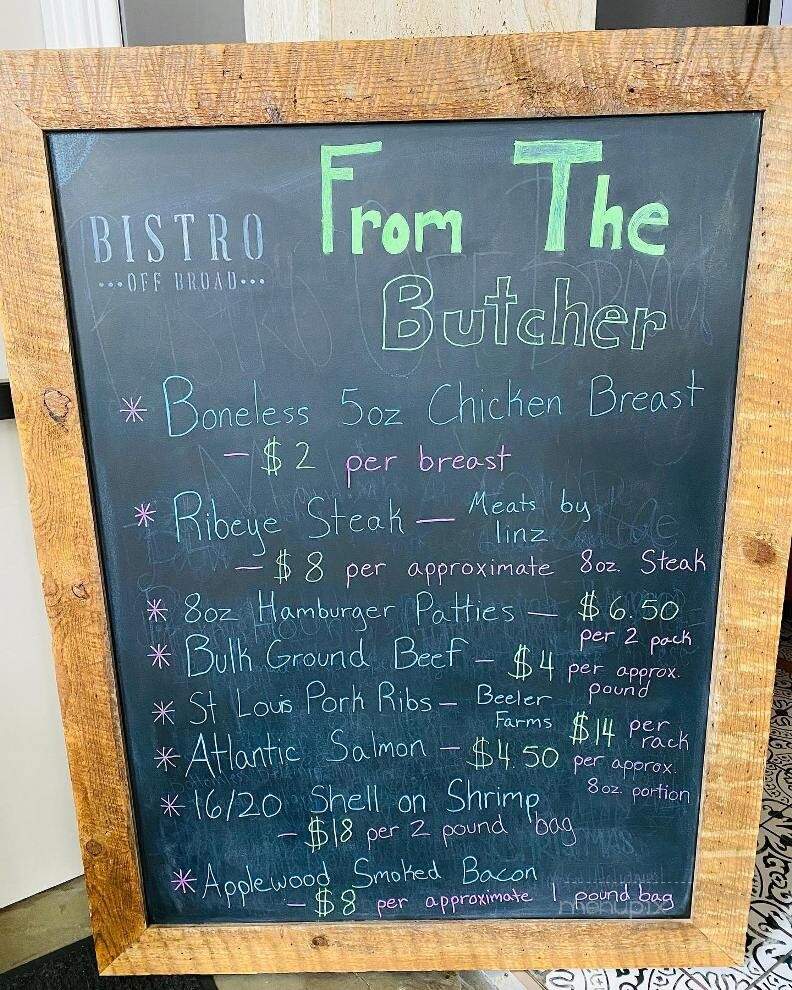 BISTRO
•••OFF BROAD•••
From The
Butcher
* Boneless 5oz Chicken Breast
- $2 per breast
* Ribeye Steak — Meats by
linz
- $8 per approximate 8oz. Steak
* 8oz Hamburger Patties - $6.50
per 2 pack
* Bulk Ground Beef - $4 per approx.
pound
* St Louis Pork Ribs - Beeler
Farms $14 per
rack
* Atlantic Salmon - $4.50 per approx.
8oz. portion
* 16/20 Shell on Shrimp
- $18 per 2 pound bag
* Applewood Smoked Bacon
- $8 per approximate 1 pound bag
menupix